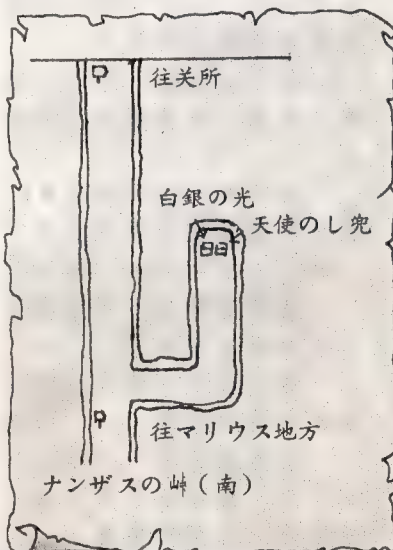 往关所
白銀の光
天使のし兜
往マリウス地方
ナンザスの峠(南)